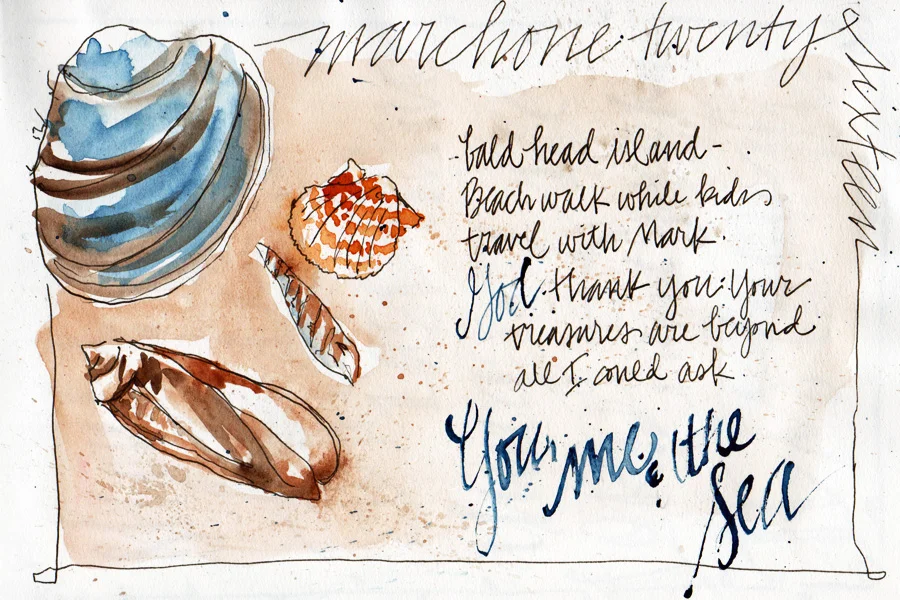 marchone twenty
sixteen
- bald head island -
Beach walk while kids
travel with Mark.
God. thank you. Your
treasures are beyond
all I could ask.
You, me, & the
sea